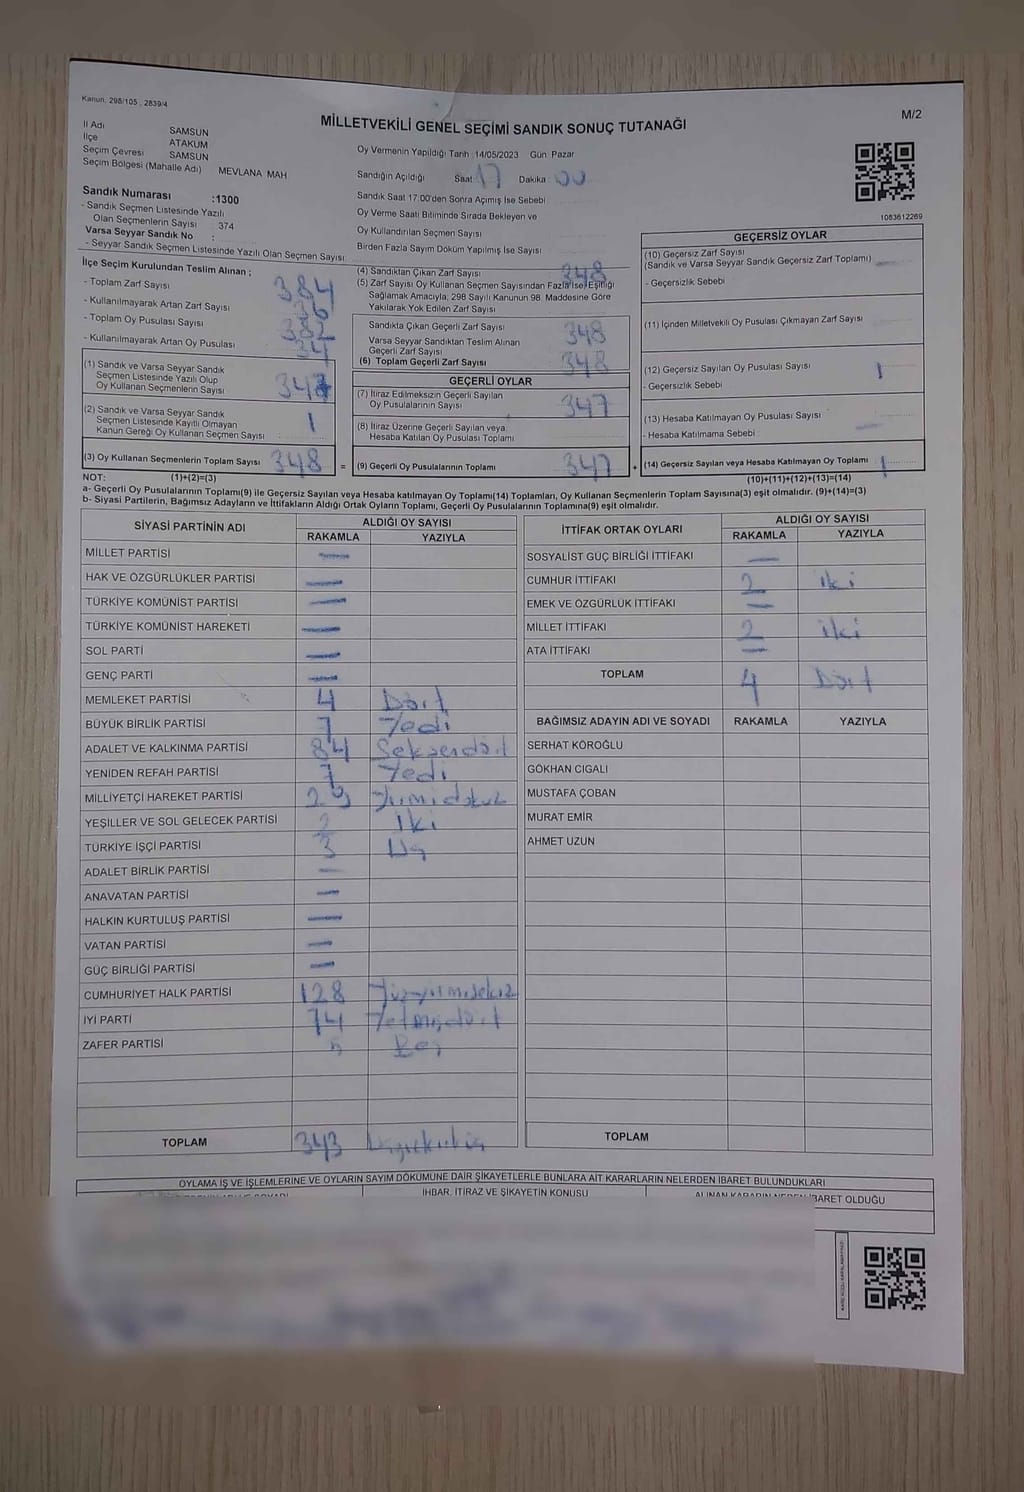 Kanun: 298/105 , 2839/4
M/2
MİLLETVEKİLİ GENEL SEÇİMİ SANDIK SONUÇ TUTANAĞI
İl Adı SAMSUN
İlçe ATAKUM
Seçim Çevresi SAMSUN
Seçim Bölgesi (Mahalle Adı) MEVLANA MAH
Sandık Numarası :1300
- Sandık Seçmen Listesinde Yazılı
Olan Seçmenlerin Sayısı : 374
Varsa Seyyar Sandık No :
- Seyyar Sandık Seçmen Listesinde Yazılı Olan Seçmen Sayısı
Oy Vermenin Yapıldığı Tarih :14/05/2023 Gün Pazar
Sandığın Açıldığı Saat 17 Dakika 00
Sandık Saat 17:00'den Sonra Açımış İse Sebebi
Oy Verme Saati Bitiminde Sırada Bekleyen ve
Oy Kullandırılan Seçmen Sayısı
Birden Fazla Sayım Döküm Yapılmış İse Sayısı
1083612269
İlçe Seçim Kurulundan Teslim Alınan ;
- Toplam Zarf Sayısı 384
- Kullanılmayarak Artan Zarf Sayısı 36
- Toplam Oy Pusulası Sayısı 382
- Kullanılmayarak Artan Oy Pusulası 34
(1) Sandık ve Varsa Seyyar Sandık
Seçmen Listesinde Yazılı Olup
Oy Kullanan Seçmenlerin Sayısı 347
(2) Sandık ve Varsa Seyyar Sandık
Seçmen Listesinde Kayıtlı Olmayan
Kanun Gereği Oy Kullanan Seçmen Sayısı 1
(3) Oy Kullanan Seçmenlerin Toplam Sayısı 348 =
(4) Sandıktan Çıkan Zarf Sayısı 348
(5) Zarf Sayısı Oy Kullanan Seçmen Sayısından Fazla İse, Eşitliği
Sağlamak Amacıyla, 298 Sayılı Kanunun 98. Maddesine Göre
Yakılarak Yok Edilen Zarf Sayısı
Sandıkta Çıkan Geçerli Zarf Sayısı 348
Varsa Seyyar Sandıktan Teslim Alınan
Geçerli Zarf Sayısı
(6) Toplam Geçerli Zarf Sayısı 348
GEÇERLİ OYLAR
(7) İtiraz Edilmeksizin Geçerli Sayılan
Oy Pusulalarının Sayısı 347
(8) İtiraz Üzerine Geçerli Sayılan veya
Hesaba Katılan Oy Pusulası Toplamı
(9) Geçerli Oy Pusulalarının Toplamı 347 +
GEÇERSİZ OYLAR
(10) Geçersiz Zarf Sayısı
(Sandık ve Varsa Seyyar Sandık Geçersiz Zarf Toplamı) —
- Geçersizlik Sebebi
(11) İçinden Milletvekili Oy Pusulası Çıkmayan Zarf Sayısı
(12) Geçersiz Sayılan Oy Pusulası Sayısı 1
- Geçersizlik Sebebi
(13) Hesaba Katılmayan Oy Pusulası Sayısı —
- Hesaba Katılmama Sebebi
(14) Geçersiz Sayılan veya Hesaba Katılmayan Oy Toplamı 1
NOT: (1)+(2)=(3) (10)+(11)+(12)+(13)=(14)
a- Geçerli Oy Pusulalarının Toplamı(9) ile Geçersiz Sayılan veya Hesaba katılmayan Oy Toplamı(14) Toplamları, Oy Kullanan Seçmenlerin Toplam Sayısına(3) eşit olmalıdır. (9)+(14)=(3)
b- Siyasi Partilerin, Bağımsız Adayların ve İttifakların Aldığı Ortak Oyların Toplamı, Geçerli Oy Pusulalarının Toplamına(9) eşit olmalıdır.
SİYASİ PARTİNİN ADI ALDIĞI OY SAYISI
RAKAMLA YAZIYLA
MİLLET PARTİSİ —
HAK VE ÖZGÜRLÜKLER PARTİSİ —
TÜRKİYE KOMÜNİST PARTİSİ —
TÜRKİYE KOMÜNİST HAREKETİ —
SOL PARTİ —
GENÇ PARTİ —
MEMLEKET PARTİSİ 4 Dört
BÜYÜK BİRLİK PARTİSİ 7 Yedi
ADALET VE KALKINMA PARTİSİ 84 Seksendört
YENİDEN REFAH PARTİSİ 7 Yedi
MİLLİYETÇİ HAREKET PARTİSİ 29 Yirmidokuz
YEŞİLLER VE SOL GELECEK PARTİSİ 2 İki
TÜRKİYE İŞÇİ PARTİSİ 3 Üç
ADALET BİRLİK PARTİSİ —
ANAVATAN PARTİSİ —
HALKIN KURTULUŞ PARTİSİ —
VATAN PARTİSİ —
GÜÇ BİRLİĞİ PARTİSİ —
CUMHURİYET HALK PARTİSİ 128 Yüzyirmisekiz
İYİ PARTİ 74 Yetmişdört
ZAFER PARTİSİ 5 Beş
TOPLAM 343 Üçyüzkırküç
İTTİFAK ORTAK OYLARI ALDIĞI OY SAYISI
RAKAMLA YAZIYLA
SOSYALİST GÜÇ BİRLİĞİ İTTİFAKI —
CUMHUR İTTİFAKI 2 iki
EMEK VE ÖZGÜRLÜK İTTİFAKI —
MİLLET İTTİFAKI 2 iki
ATA İTTİFAKI —
TOPLAM 4 Dört
BAĞIMSIZ ADAYIN ADI VE SOYADI RAKAMLA YAZIYLA
SERHAT KÖROĞLU
GÖKHAN CIGALI
MUSTAFA ÇOBAN
MURAT EMİR
AHMET UZUN
TOPLAM
OYLAMA İŞ VE İŞLEMLERİNE VE OYLARIN SAYIM DÖKÜMÜNE DAİR ŞİKAYETLERLE BUNLARA AİT KARARLARIN NELERDEN İBARET BULUNDUKLARI
İHBAR, İTİRAZ VE ŞİKAYETİN KONUSU
ALINAN KARARIN NEDEN İBARET OLDUĞU